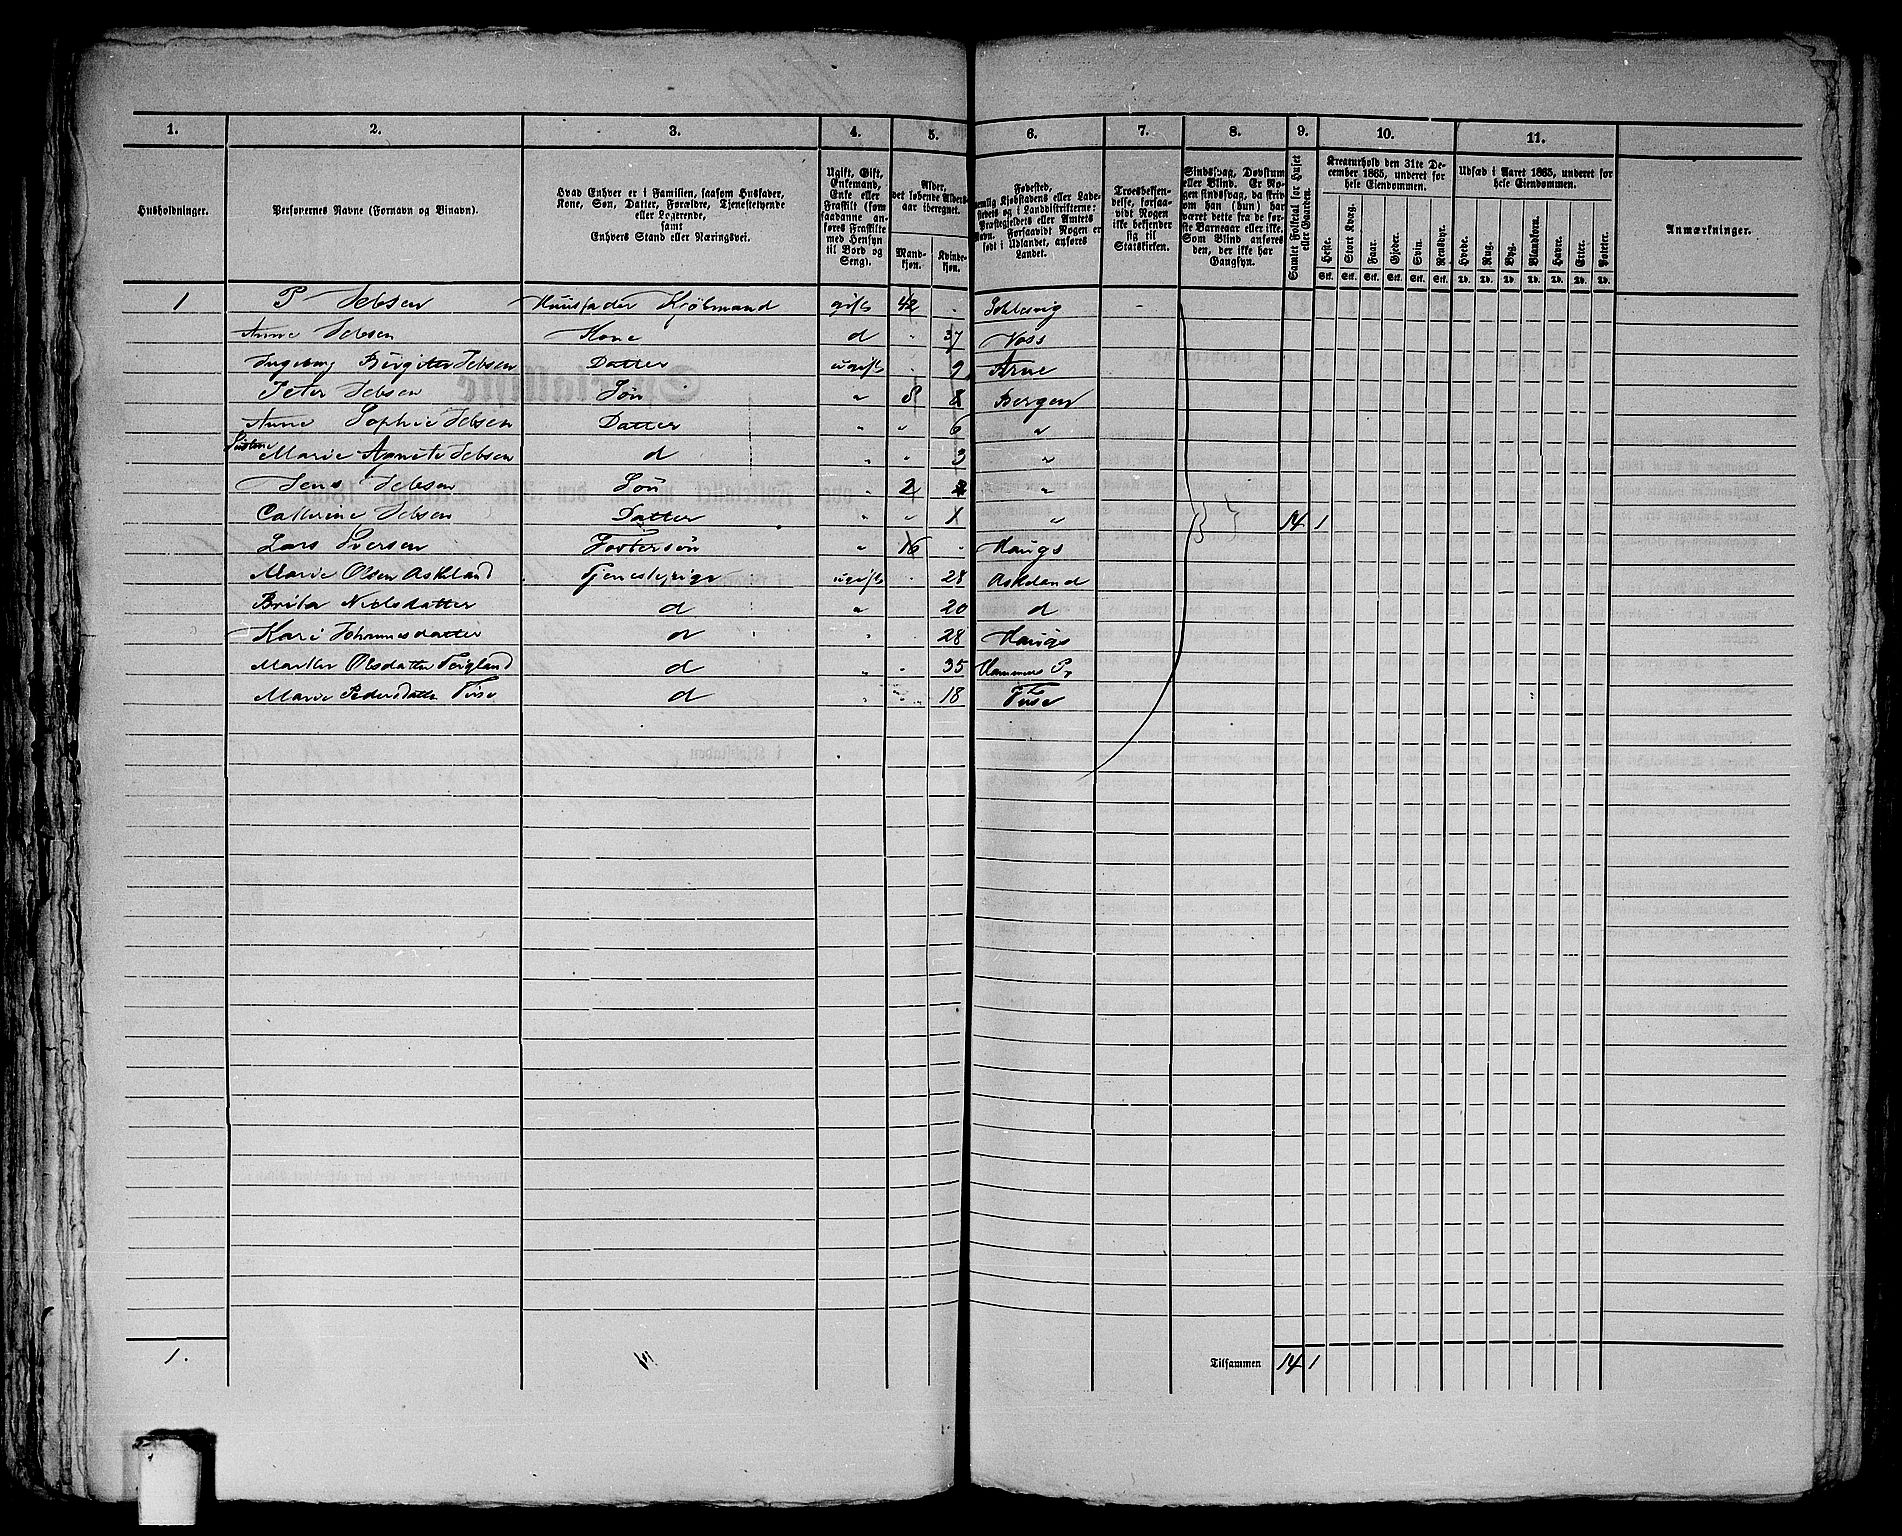 1. 2. 3. 4. 5. 6. 7. 8. 9. 10. 11.
Husholdninger.
Personernes Navne (Fornavn og Tilnavn).
Hvad Enhver er i Familien, saasom Husfader,
Kone, Søn, Datter, Forældre, Tjenestetyende
eller Logerende,
samt
Enhvers Stand eller Næringsvei.
Ugift, Gift,
Enkemand,
Enke eller
Fraskilt (som
saadanne an-
føres Fraskilte
med Hensyn
til Bord og
Seng).
Alder,
det løbende Alders-
aar iberegnet.
Mand-
kjøn.
Kvinde-
kjøn.
Fødested,
nemlig Kjøbstadens eller Lade-
stedets og i Landdistrikterne:
Præstegjeldets eller Amtets
Navn. Forsaavidt Nogen er
født i Udlandet, anføres
Landet.
Troesbekjen-
delse, forsaa-
vidt Nogen
ikke bekjender
sig til
Statskirken.
Sindssvag, Døvstum
eller Blind. Er No-
gen sindssvag, da skriv
om han (hun) har
været dette fra de før-
ste Barneaar eller ikke.
Som Blind anføres
den, der ikke har
Gangsyn.
Samlet Folketal for Huset
eller Gaarden.
Kreaturhold den 31te De-
cember 1865, underet for
hele Eiendommen.
Heste. Stort Kvæg. Faar. Gjeder. Svin. Rensdyr.
Stk. Stk. Stk. Stk. Stk. Stk.
Udsæd i Aaret 1865, underet for
hele Eiendommen.
Hvede. Rug. Byg. Blandkorn. Havre. Erter. Poteter.
Td. Td. Td. Td. Td. Td. Td.
Anmærkninger.
1 P Jebsen Huusfader Kjøbmand gift 42 Schlesvig
Anne Jebsen Kone d 37 Voss
Ingeborg Birgitte Jebsen Datter ugift 9 Arne
Peter Jebsen Søn " 8 8 Bergen
Anne Sophie Jebsen Datter " " 6 "
Marie Agnete Jebsen d " " 3 "
Jens Jebsen Søn " 2 "
Cathrine Jebsen Datter " " 1 " 14 1
Lars Iversen Fostersøn " 16 Haugs
Marie Olsen Askeland Tjenestepige ugift 28 Askeland
Brita Nielsdatter d " 20 d
Kari Johannesdatter d " 28 Haugs
Marta Olsdatter Teigland d " 35 Hammers Pr
Marie Pedersdatter Fuse d " 18 Fuse
1. Tilsammen 14 1